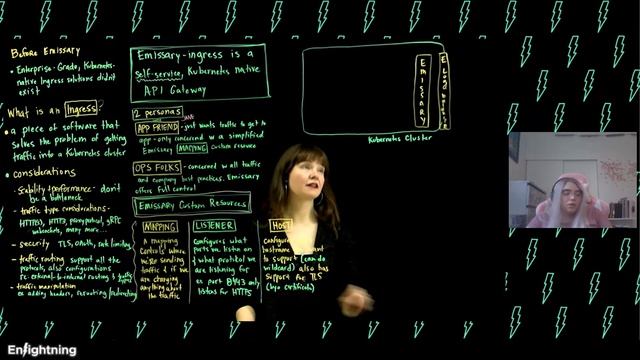 Before Emissary
• Enterprise-Grade, Kubernetes-
native Ingress solutions didn't
exist
What is an Ingress?
• a piece of software that
solves the problem of getting
traffic into a Kubernetes cluster
• considerations
- scalability + performance - don't
be a bottleneck
- traffic type considerations -
HTTP, gRPC
websockets, many more...
- security TLS, OAuth, rate limiting
- traffic routing support all the
protocols, also configurations
- traffic manipulation
ex adding headers,
Emissary-ingress is a
self-service, Kubernetes native
API Gateway
2 personas
APP FRIEND - just wants traffic to get to
app - only concerned w a simplified
Emissary MAPPING custom resource
OPS FOLKS - concerned w all traffic
and company best practices. Emissary
offers full control
Emissary Custom Resources
MAPPING
A mapping
controls where
we're sending
traffic & if we
are changing
anything about
the traffic
LISTENER
Configures what
ports we listen on
& what protocol we
are listening for
ex port 8443 only
listens for HTTPS
HOST
Configure
hostname want
to support (can do
wildcard) also has
support for TLS
EMISSARY
Kubernetes Cluster
Enlightning